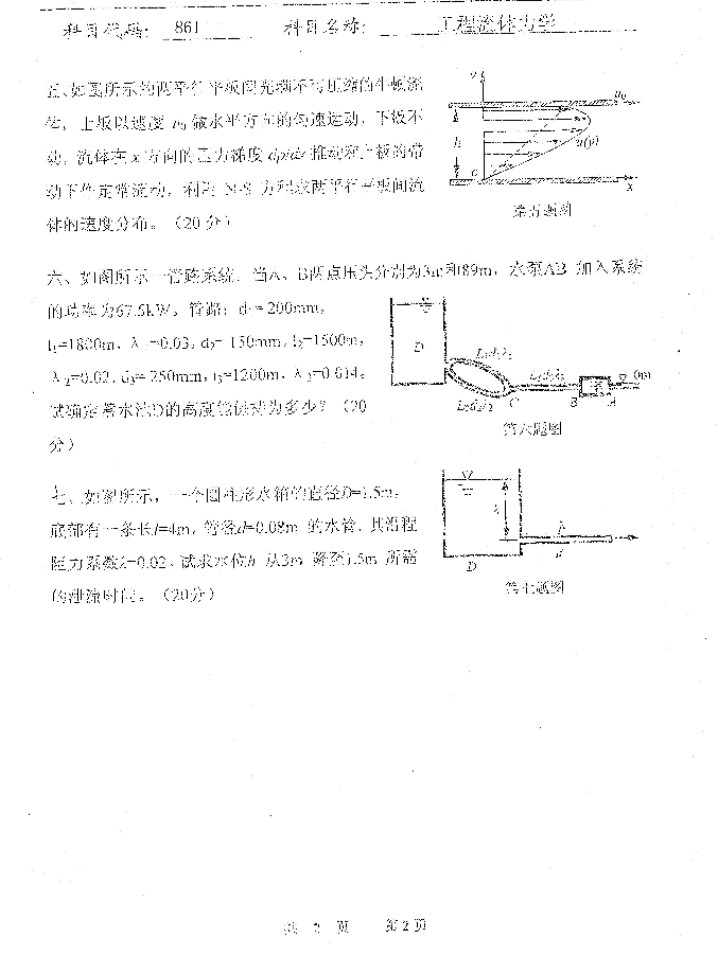 科目代码: 861 科目名称: 工程流体力学
五、如图所示的两平行平板间充满不可压缩的牛顿流
体，上板以速度 u₀ 做水平方向的匀速运动，下板不
动，流体在 x 方向的压力梯度 dp/dx 推动和上板的带
动下作定常流动，利用 N-S 方程求两平行平板间流
体的速度分布。（20 分）
y
u₀
h
u(y)
o
x
第五题图
六、如图所示一管路系统，当A、B两点压头分别为3m和89m，水泵AB 加入系统
的功率为67.5kW。管路：d₁=200mm，
l₁=1800m，λ₁=0.03，d₂=150mm，l₂=1500m，
λ₂=0.02，d₃=250mm，l₃=1200m，λ₃=0.014。
试确定蓄水池D的高度 为多少？（20
分）
D
L₁d₁λ₁
L₂d₂λ₂
L₃d₃λ₃
C
B
A
0m
第六题图
七、如图所示，一个圆柱形水箱的直径D=1.5m，
底部有一条长l=4m，管径d=0.08m 的水管，其沿程
阻力系数λ=0.02，试求水位h 从3m 降至1.5m 所需
的泄流时间。（20分）
h
D
d
第七题图
共 2 页 第 2 页